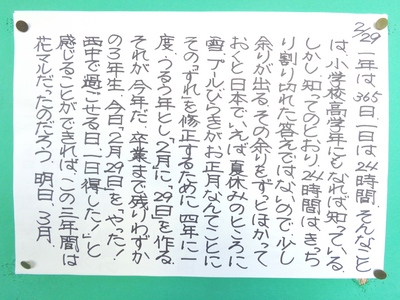 2/29
一年は365日、一日は24時間、そんなこと
は、小学校高学年にもなれば知っている。
しかし、知ってのとおり、24時間はきっち
り割り切れた答えではないので、少し
余りが出る。その余りをずーとほかって
おくと、日本でいえば、夏休みのところに
雪、プールびらきがお正月なんてことに…
その“ずれ”を修正するために、四年に一
度、うるう年とし「2月に“29日”を作る。
それが今年だ。卒業まで残りわずか
の3年生、今日の2月29日を「やった！
西中で過ごせる日、一日得した！」と
感じることができれば、この三年間は
花マルだったのだろう。明日、3月。